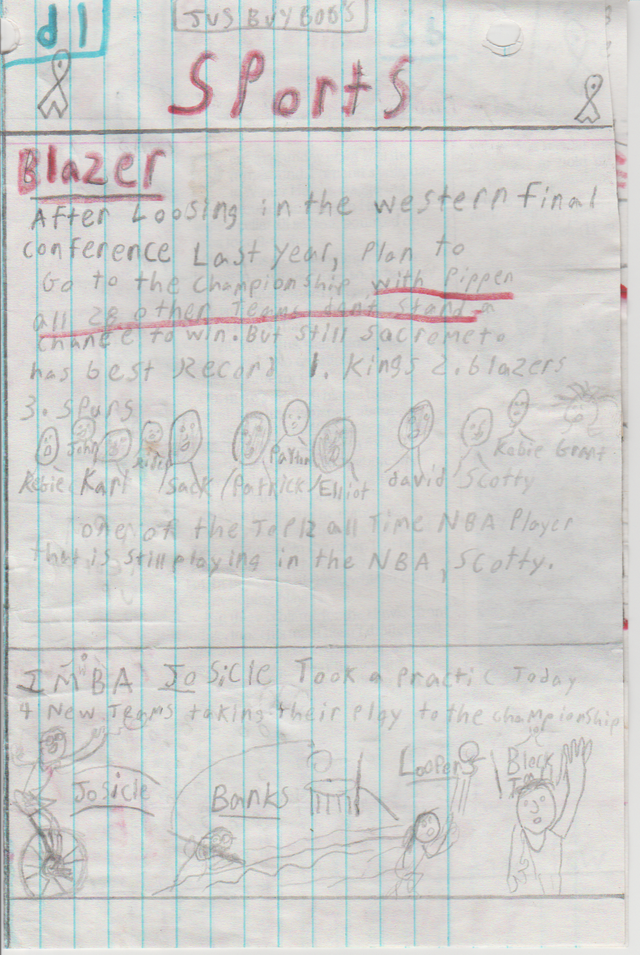 d1
JUS BUY BOB'S
SPortS
Blazer
After Loosing in the western final
conference Last year, Plan to
Go to the championship with Pippen
all 28 other Teams don't stand a
chance to win. But still sacrometo
has best Record 1. Kings 2. blazers
3. Spurs
John Kobie Grant
Karl / Sack / Patrick / Elliot david Scotty
one of the Top 12 all Time NBA Player
that is still playing in the NBA, Scotty.
IMBA Josicle Took a Practic Today
4 New Teams taking their play to the championship
Loopers Black
Josicle Banks